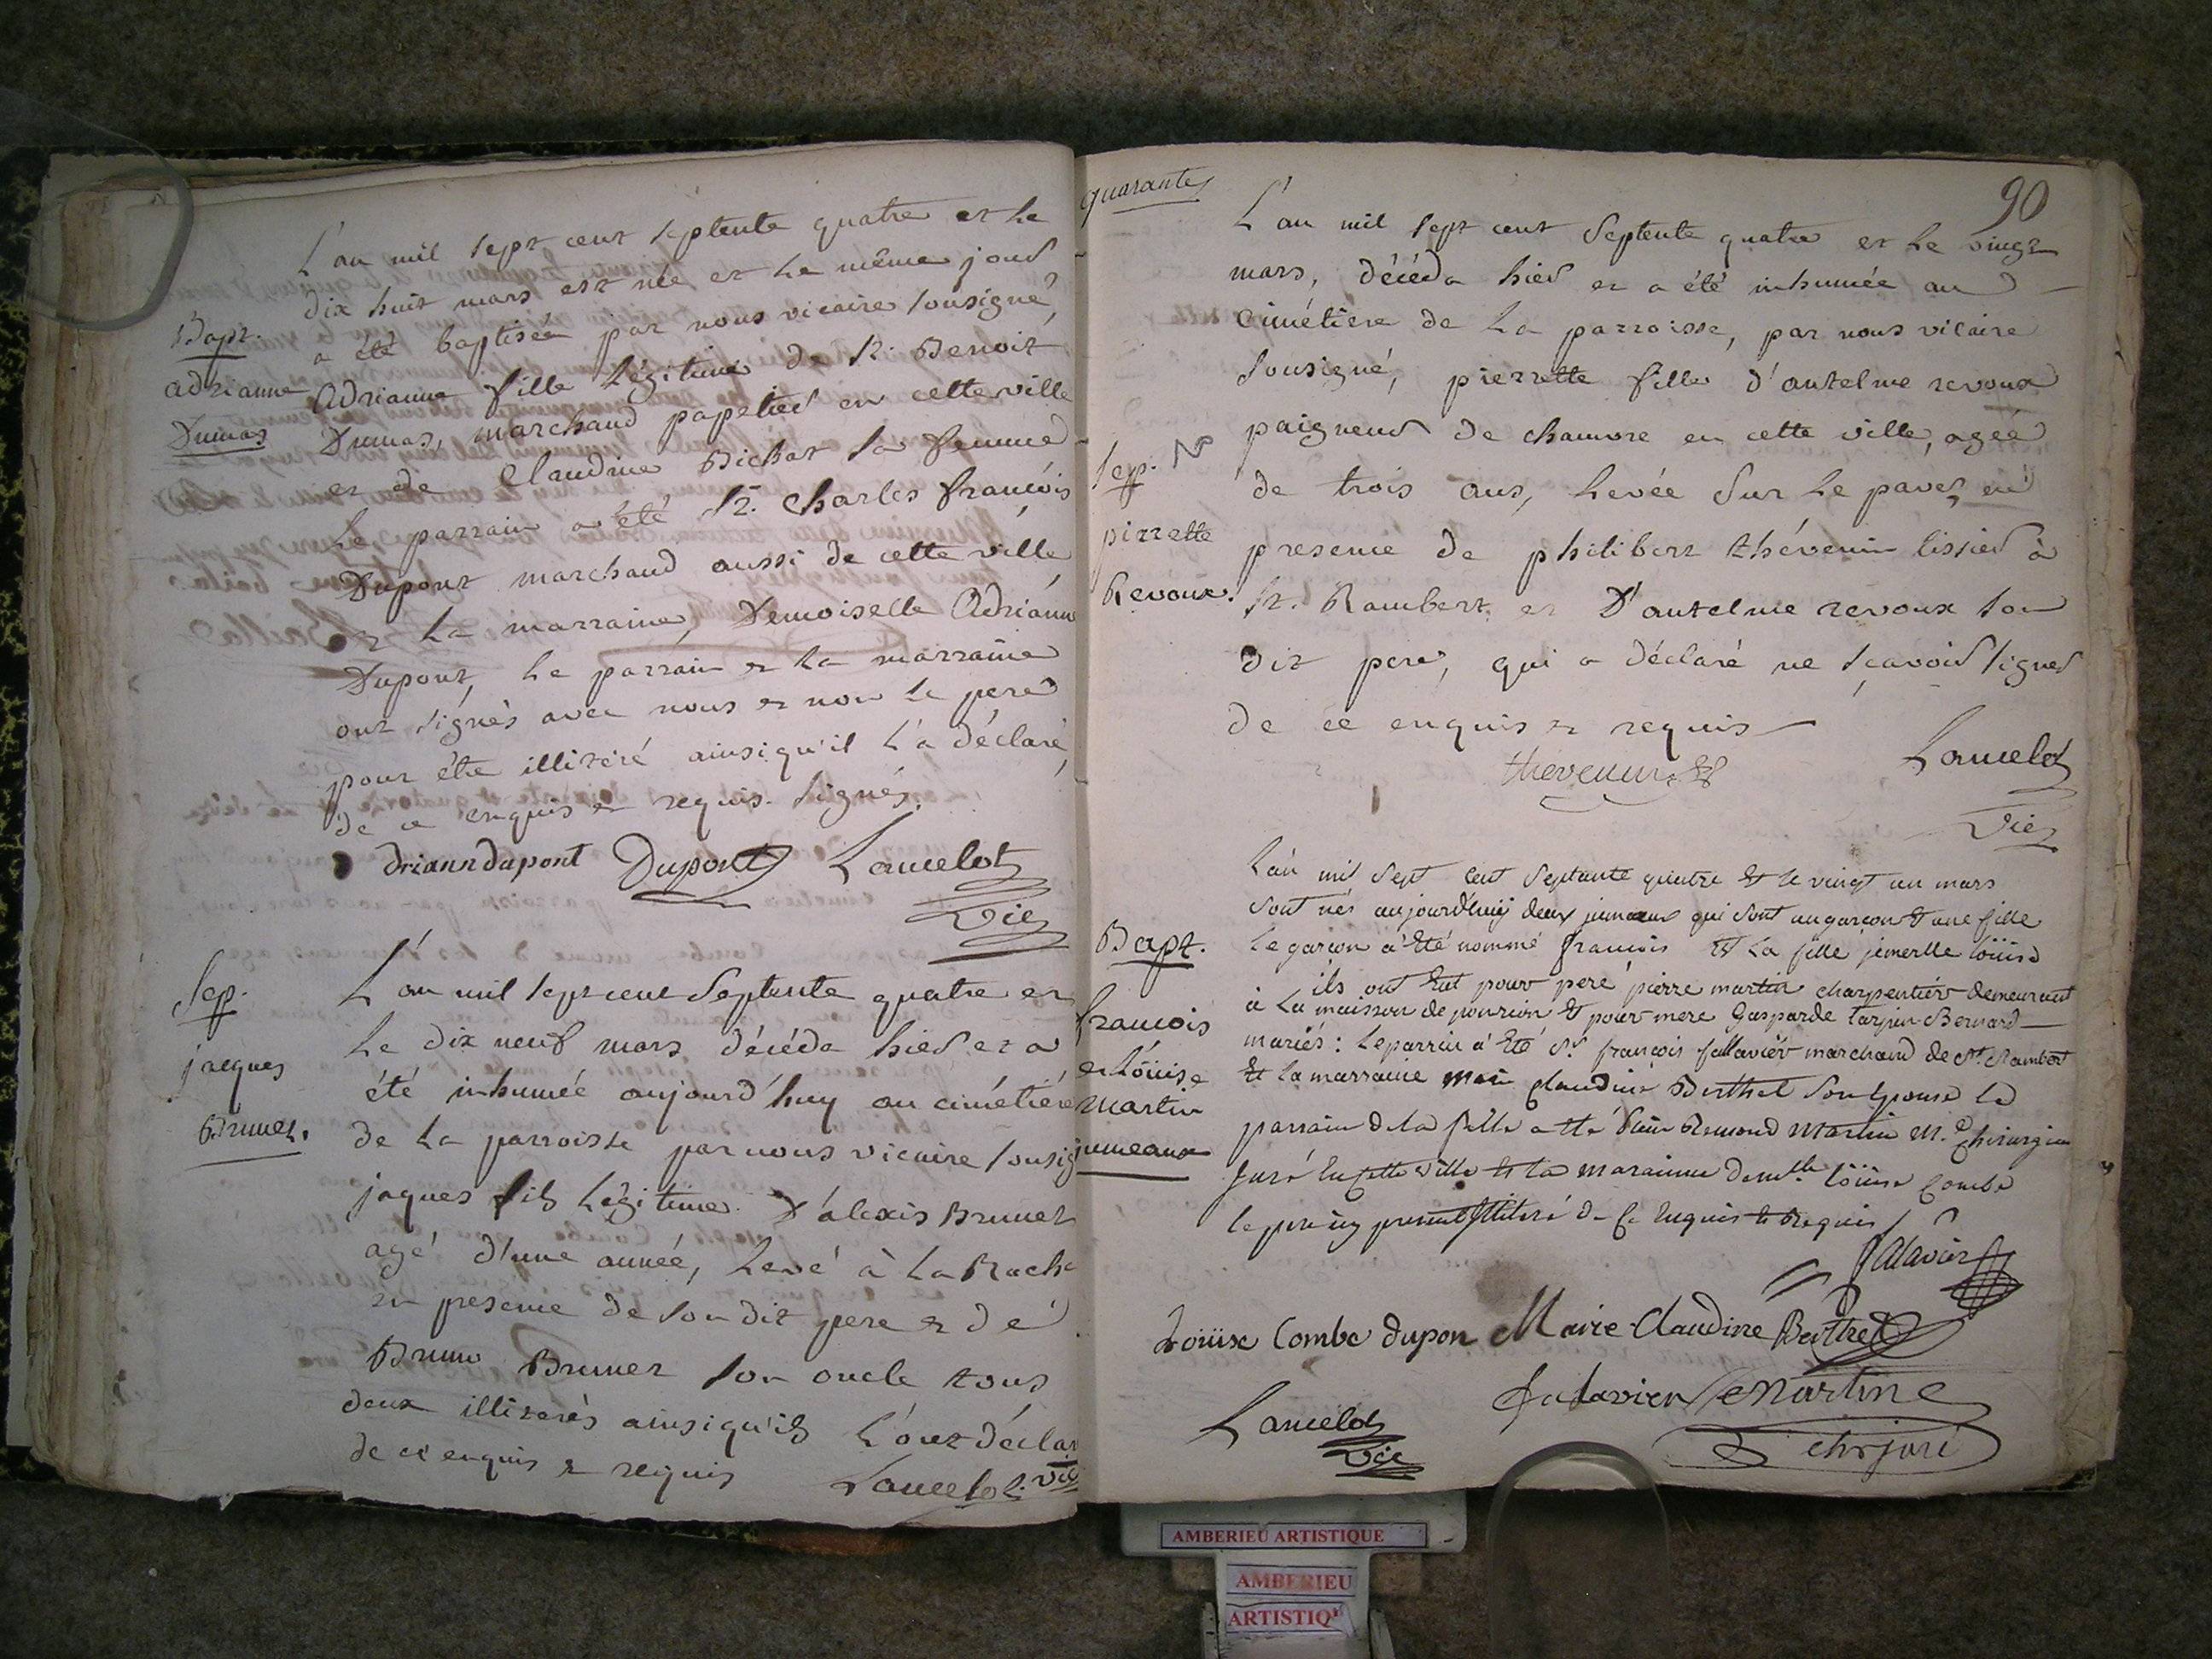 L'an mil sept cent septente quatre et le
dix huit mars est née et le même jour
a été baptisée par nous vicaire sousigné,
Bapt.
adrianne
Dumas
Adrianne fille légitime de Sr. Benoit
Dumas, marchand papetier en cette ville
et de Claudine Bichat sa femme
Le parrain a été Sr. Charles françois
Dupont marchand aussi de cette ville
et la marraine, Demoiselle Adrianne
Dupont, le parrain et la marraine
ont signés avec nous et non le pere
pour être illiteré ainsi qu'il l'a déclaré,
de ce enquis et requis. signés.
drianndupont Dupont Lancelot
Vic
Sep.
jacques
Brunet.
L'an mil sept cent septente quatre et
le dix neuf mars décéda hier et a
été inhumée aujourd'huy au cimétiere
de la parroisse par nous vicaire sousig
jaques fils légitime d'alexis Brunet
agé d'une année, levé à la Roche
en presence de son dit pere et de
Bruno Brunet son oncle tous
deux illiterés ainsi qu'ils l'ont déclar
de ce enquis et requis Lancelot. Vic
quarante
90
L'an mil sept cent septente quatre et le vingt
mars, décéda hier et a été inhumée au
cimétiere de la parroisse, par nous vicaire
sousigné, pierrette fille d'antelme revoux
paigneur de chanvre en cette ville, agée
Sep.
pierrette
Revoux.
de trois ans, levée sur le pavez, en
presence de philibert thévenin tissier à
St. Rambert et d'antelme revoux son
dit pere, qui a déclaré ne sçavoir signer
de ce enquis et requis
thevenin Lancelot
Vic
L'an mil sept cent septante quatre et le vingt un mars
sont nés aujourd'huij deux jumeaux qui sont un garcon et une fille
Bapt.
francois
et Loüise
Martin
jumeaux
le garcon a été nommé francois et la fille jemelle loüise
ils ont eut pour peré pierre martin charpentiér demeurant
à la maison de et pour mere Gasparde tarpin-Bernard
mariés: le parrin a été Sr. françois fallaviér marchand de St. Rambert
et la marraine marie claudine Berthet son epouse le
parrain de la fille a eté Sieur Remond Martin M.e chirurgien
juré en cette ville et la marainne dem.lle loüise Combe
le pere illiteré de ce enquis et Requis
falavier
Loüise Combe dupon Marie Claudine Berthet
Lancelot falavier Martin
Vic chr juré
AMBERIEU ARTISTIQUE
AMBERIEU
ARTISTIQ